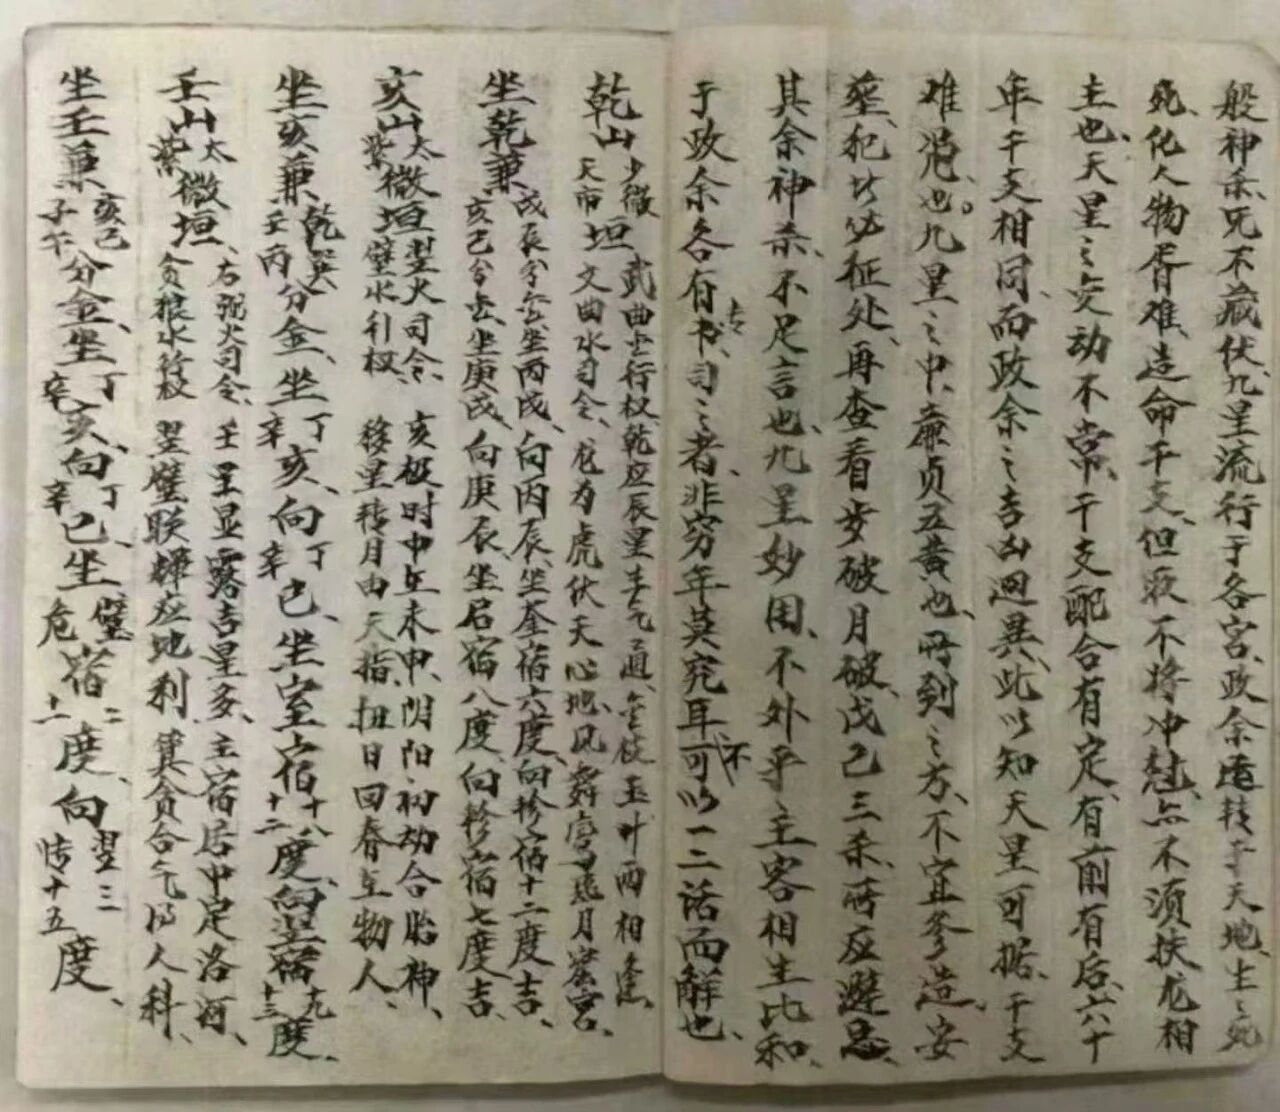 般神杀咒不藏伏、九星流行于各宫、政余运转于天地、生之死
死、化人物胥难、造命干支、但取不将冲尅、亦不须扶龙相
主也、天星之变动不常、干支配合有定、有前有后、六十
年干支相同、而政余之吉凶迥異、此以知天星可据、干支
难混也。九星之中、廉贞五黄也、所到之方、不宜参造、安
葬、犯如必征处、再查看岁破月破、戊己三杀、所应避忌、
其余神杀、不足言也、九星妙用、不外乎主客相生比和、
于政余各有专书、司之者、非穷年莫究耳、不可以一二话而解也、
乾山 少微 天市 垣 武曲金行权 乾应辰星生气通、金枝玉叶两相逢、
文曲水司令、龙为虎伏天心地、凤舞鸾 月 宫、
坐乾兼 戌辰分金、坐丙戌、向丙辰、坐奎宿六度、向轸宿十二度吉、
亥己分金、坐庚戌、向庚辰、坐启宿八度、向轸宿七度吉、
亥山 太紫 微垣 翌火司令、 亥极时中 未申、阴阳初动合胎神、
壁水引权、 移星转月由天指、扭日回春 物人、
坐亥兼 乾巽 壬丙 分金、坐 丁辛 亥、向 丁辛 巳、坐室宿 十八 十二 度、向翌宿 十九 十三 度、
壬山 太紫 微垣、 右弼火司令、 壬星显露吉星多、主宿居中定洛河、
贪狼水行权 翌壁联辉应地利 箕贪合气 人科、
坐壬兼 亥己 子午 分金、坐 丁辛 亥、向 丁辛 巳、坐 壁危 宿 二 十一 度、向 翌三 十五 度、